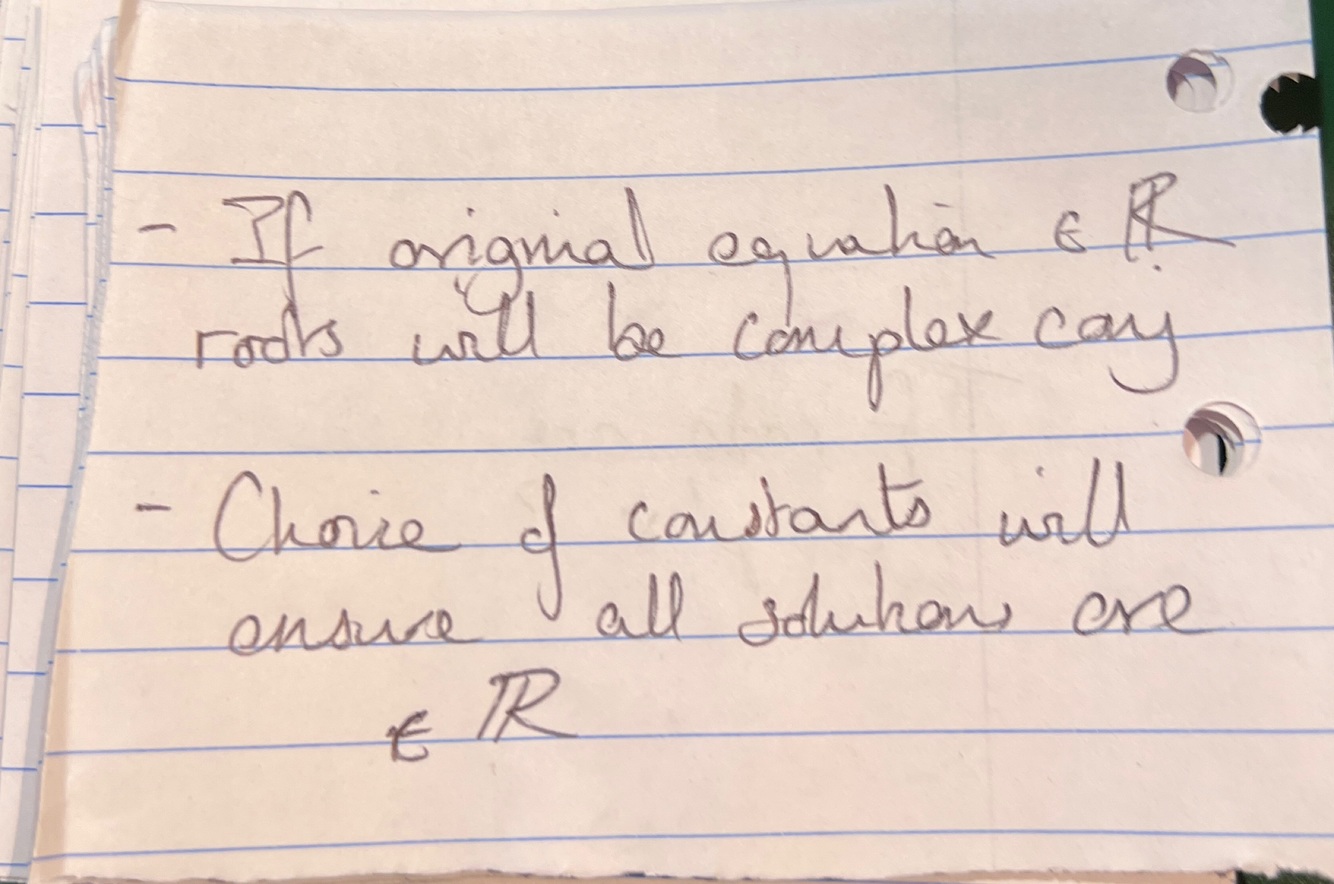 - If original equation ∈ ℝ
roots will be complex conj
- Choice of constants will
ensure all solutions are
∈ ℝ